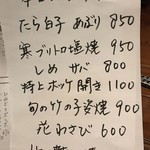 たら白子 あぶり 850
寒ブリトロ塩焼 950
しめサバ 800
特上ホッケ開き 1100
旬の竹の子姿焼 900
花わさび 600